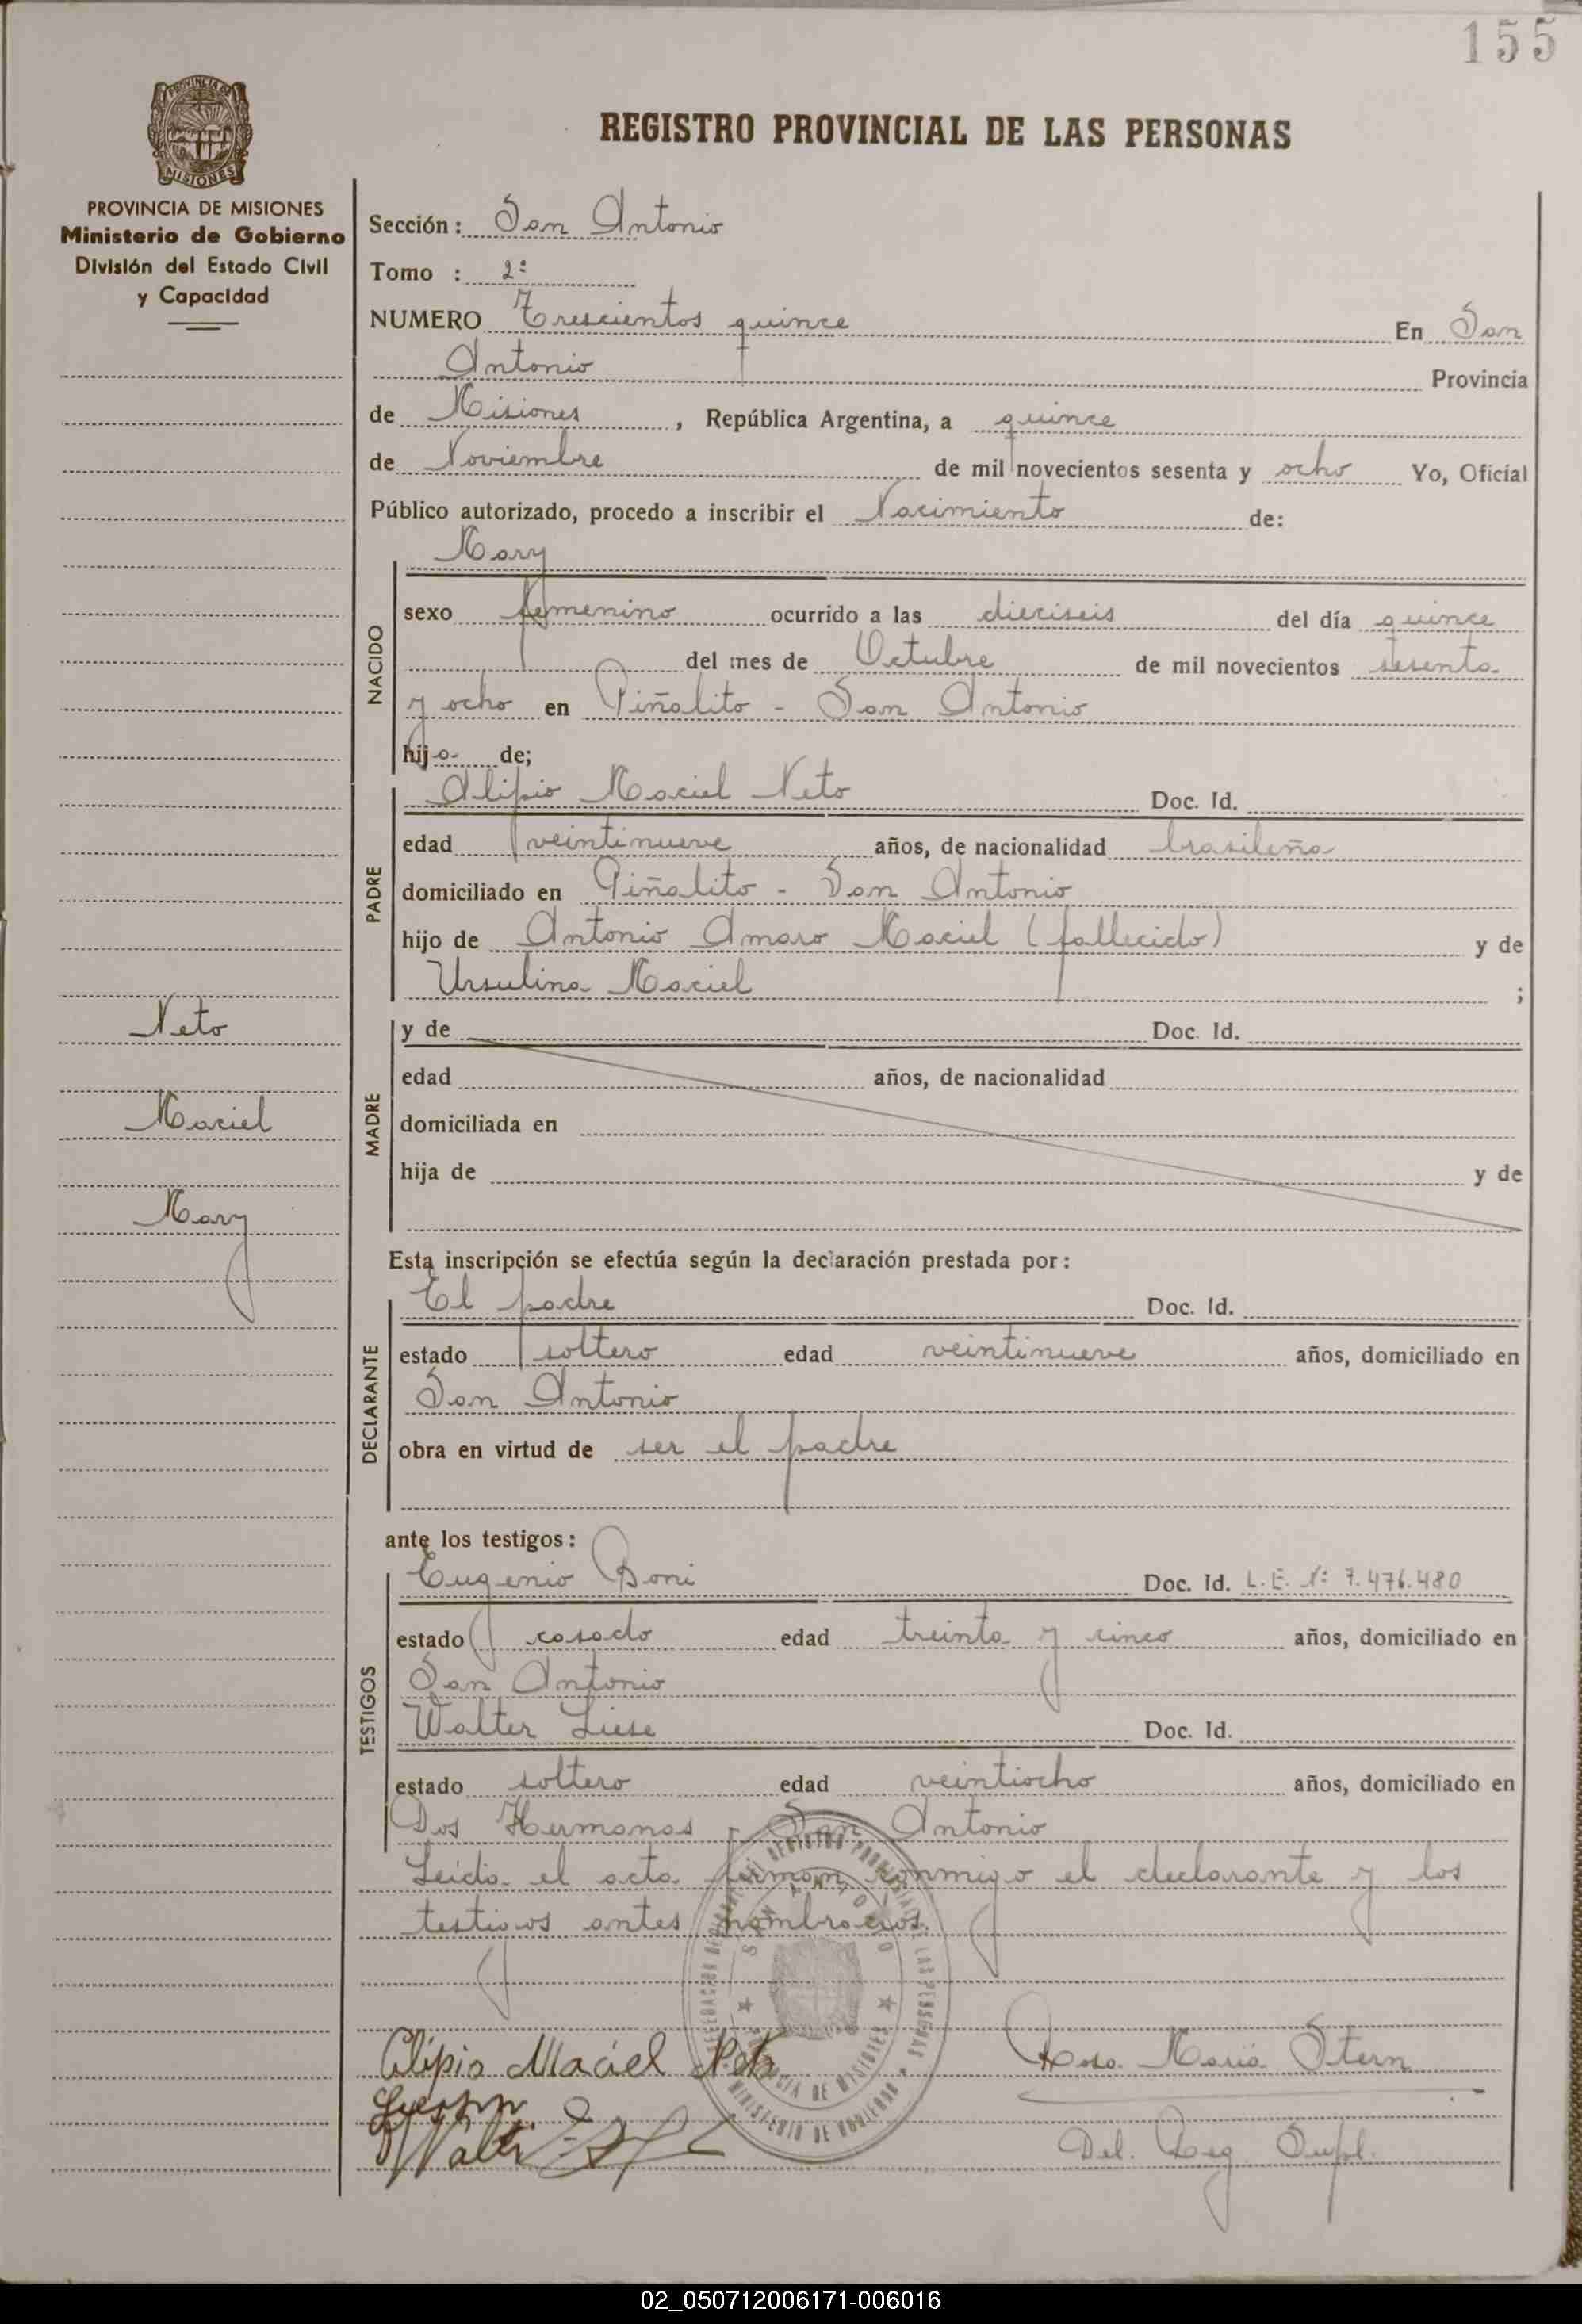 155
PROVINCIA DE
MISIONES
REGISTRO PROVINCIAL DE LAS PERSONAS
PROVINCIA DE MISIONES
Ministerio de Gobierno
División del Estado Civil
y Capacidad
Neto
Maciel
Mary
Sección: San Antonio
Tomo : 2º
NUMERO Trescientos quince En San
Antonio Provincia
de Misiones, República Argentina, a quince
de Noviembre de mil novecientos sesenta y ocho Yo, Oficial
Público autorizado, procedo a inscribir el Nacimiento de:
Mary
NACIDO
sexo femenino ocurrido a las dieciseis del día quince
del mes de Octubre de mil novecientos sesenta
y ocho en Piñalito - San Antonio
hija de;
PADRE
Alipio Maciel Neto Doc. Id.
edad veintinueve años, de nacionalidad brasileña
domiciliado en Piñalito - San Antonio
hijo de Antonio Amaro Maciel (fallecido) y de
Ursulina Maciel ;
MADRE
y de Doc. Id.
edad años, de nacionalidad
domiciliada en
hija de y de
Esta inscripción se efectúa según la declaración prestada por:
DECLARANTE
El padre Doc. Id.
estado soltero edad veintinueve años, domiciliado en
San Antonio
obra en virtud de ser el padre
ante los testigos:
TESTIGOS
Eugenio Boni Doc. Id. L.E. Nº 7.476.480
estado casado edad treinta y cinco años, domiciliado en
San Antonio
Walter Liese Doc. Id.
estado soltero edad veintiocho años, domiciliado en
Dos Hermanas - San Antonio
Leida el acta firman conmigo el declarante y los
testigos antes nombrados.
REGISTRO PROVINCIAL DE LAS PERSONAS
SAN ANTONIO
PROVINCIA DE MISIONES
MINISTERIO DE GOBIERNO
Alipio Maciel Neto
Rosa Maria Stern
Del. Reg. Supl.
02_050712006171-006016